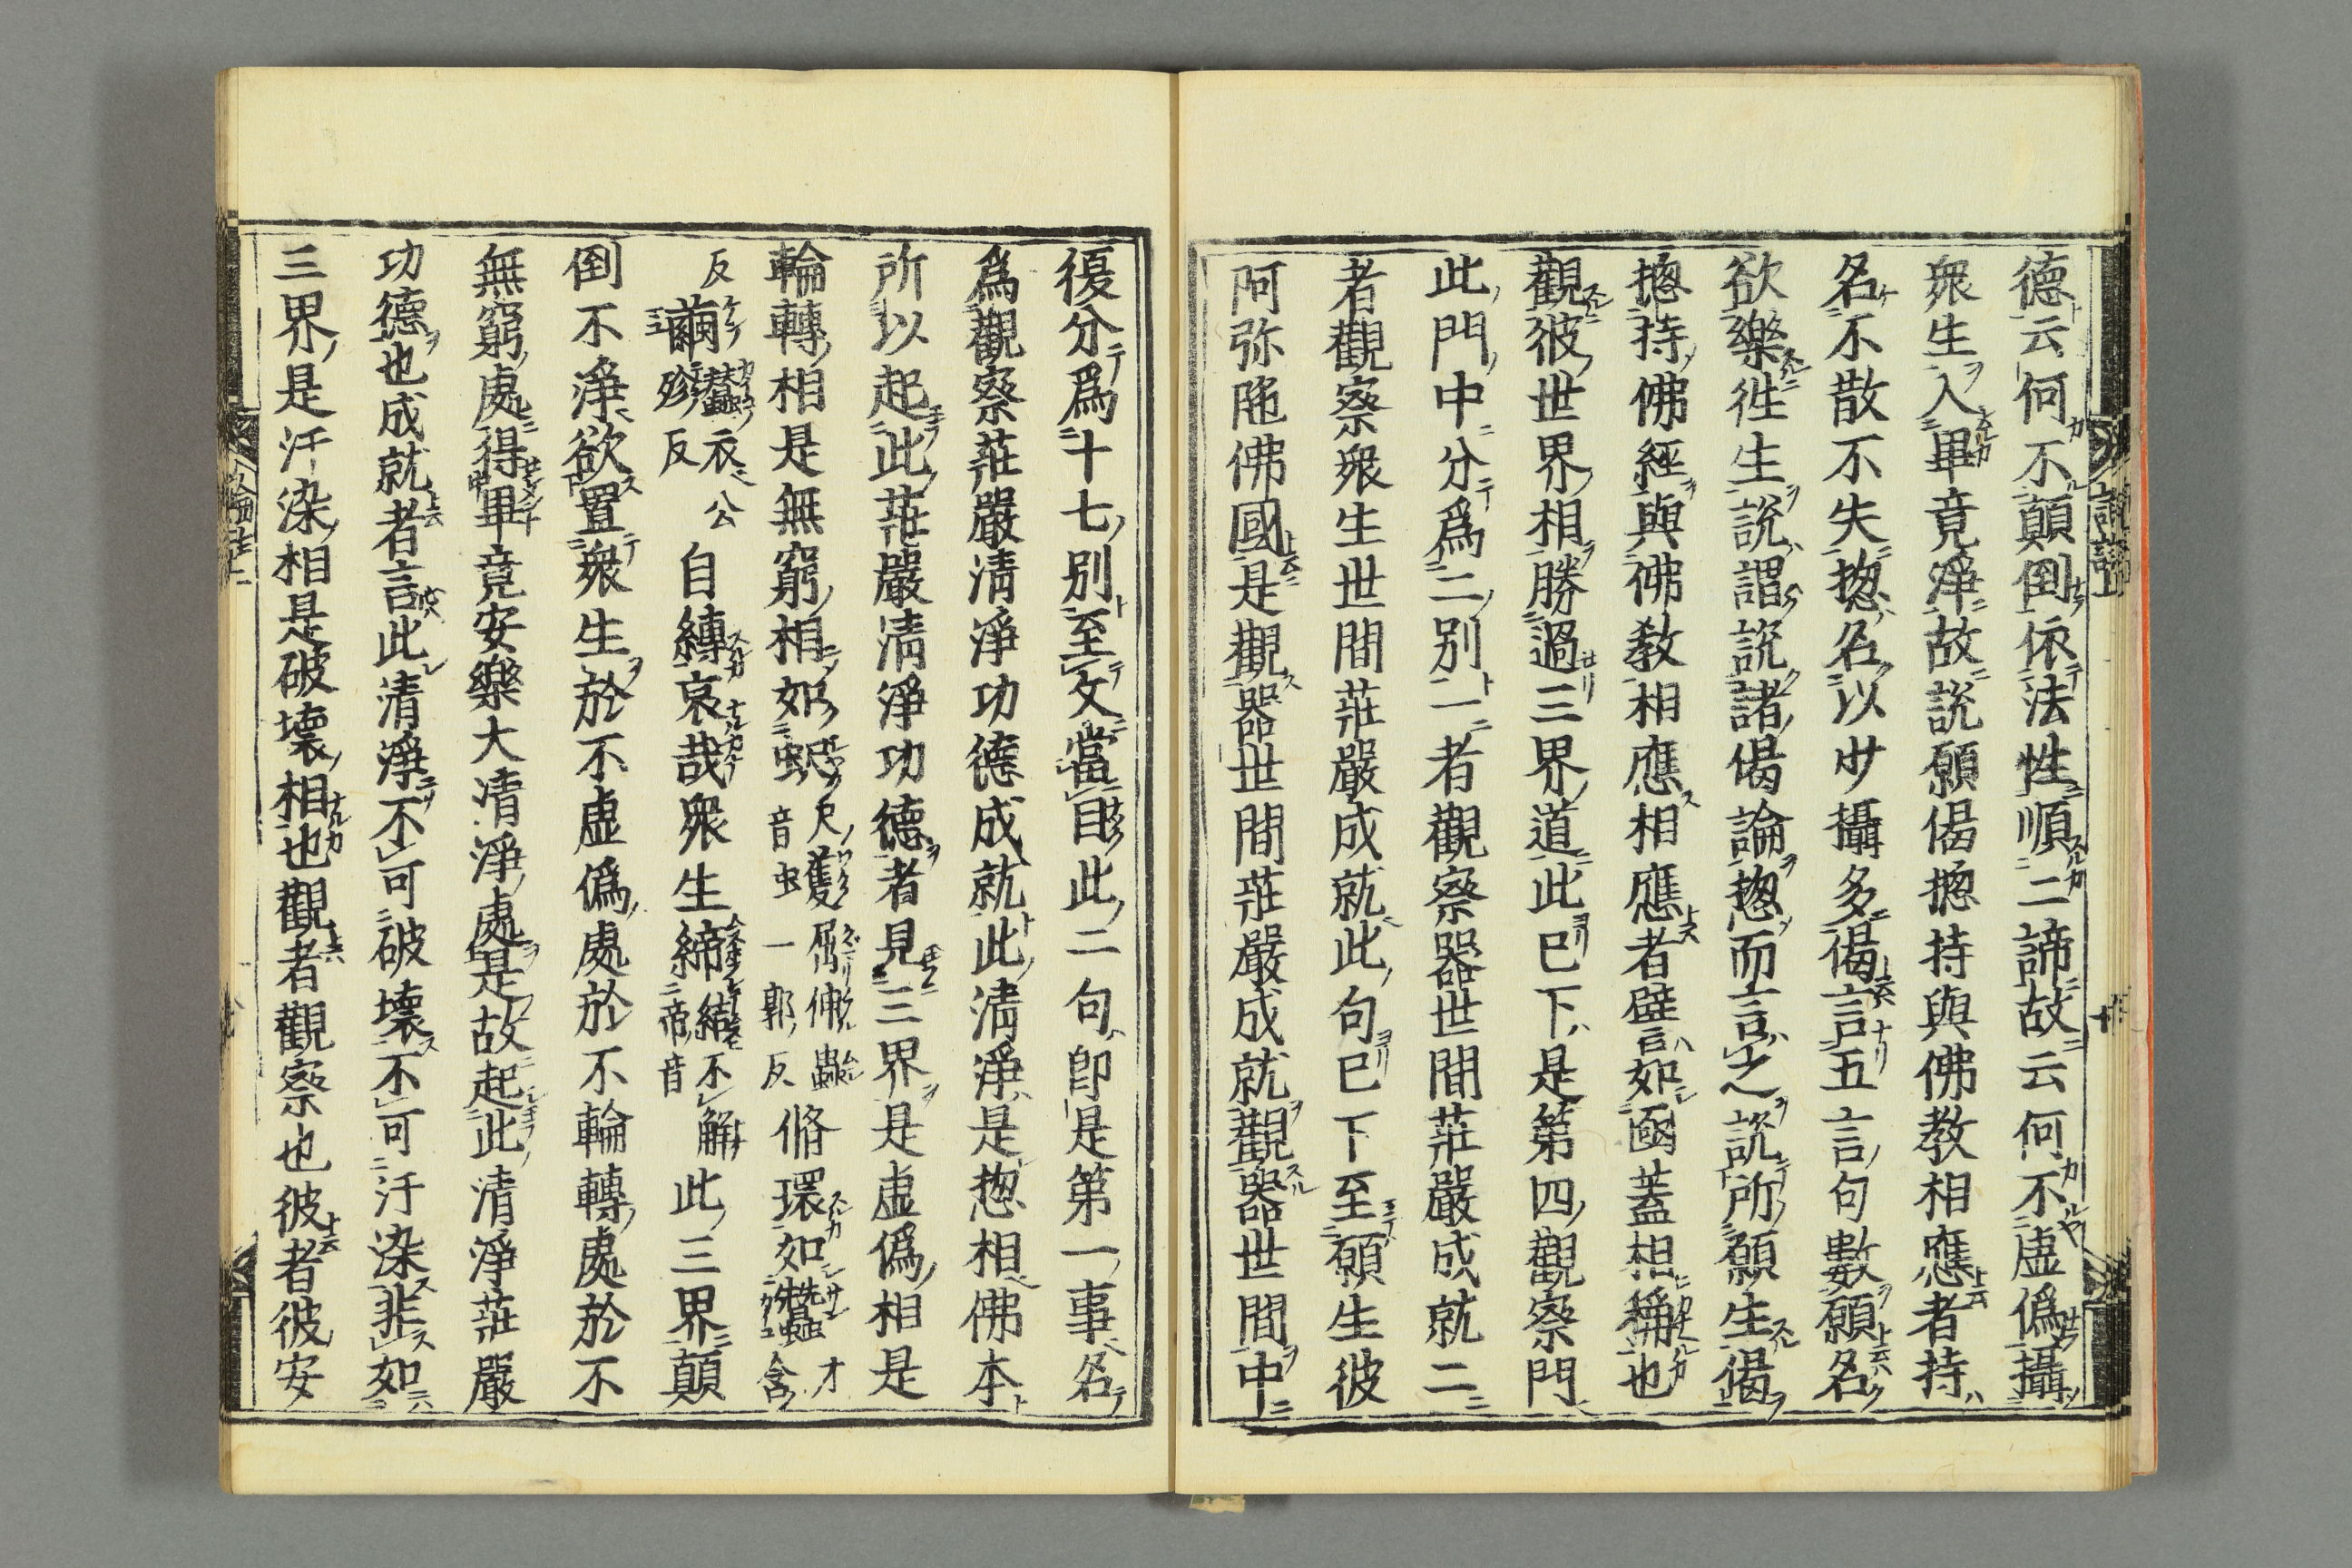 德云何不顛倒依法性順二諦故云何不虛僞攝
衆生入畢竟淨故說願偈捴持與佛教相應者持
名不散不失捴名以少攝多偈言五言句數願名
欲樂徃生說謂說諸偈論捴而言之說所願生偈
捴持佛經與佛教相應相應者譬如凾蓋相稱也
觀彼世界相勝過三界道此已下是第四觀察門
此門中分爲二別一者觀察器世間莊嚴成就二
者觀察衆生世間莊嚴成就此句已下至願生彼
阿弥陁佛國是觀器世間莊嚴成就觀器世間中
復分爲十七別至文當目此二句卽是第一事名
爲觀察莊嚴清淨功德成就此淸淨是捴相佛本
所以起此莊嚴淸淨功德者見三界是虛僞相是
輪轉相是無窮相如蚇尺音蠖屈伸蟲一郭反脩環如蠶才含
反繭蠶衣公殄反自縛哀哉衆生締結不解帝音此三界顛
倒不淨欲置衆生於不虛僞處於不輪轉處於不
無窮處得畢竟安樂大淸淨處是故起此淸淨莊嚴
功德也成就者言此清淨不可破壞不可汙染非如
三界是汙染相是破壞相也觀者觀察也彼者彼安